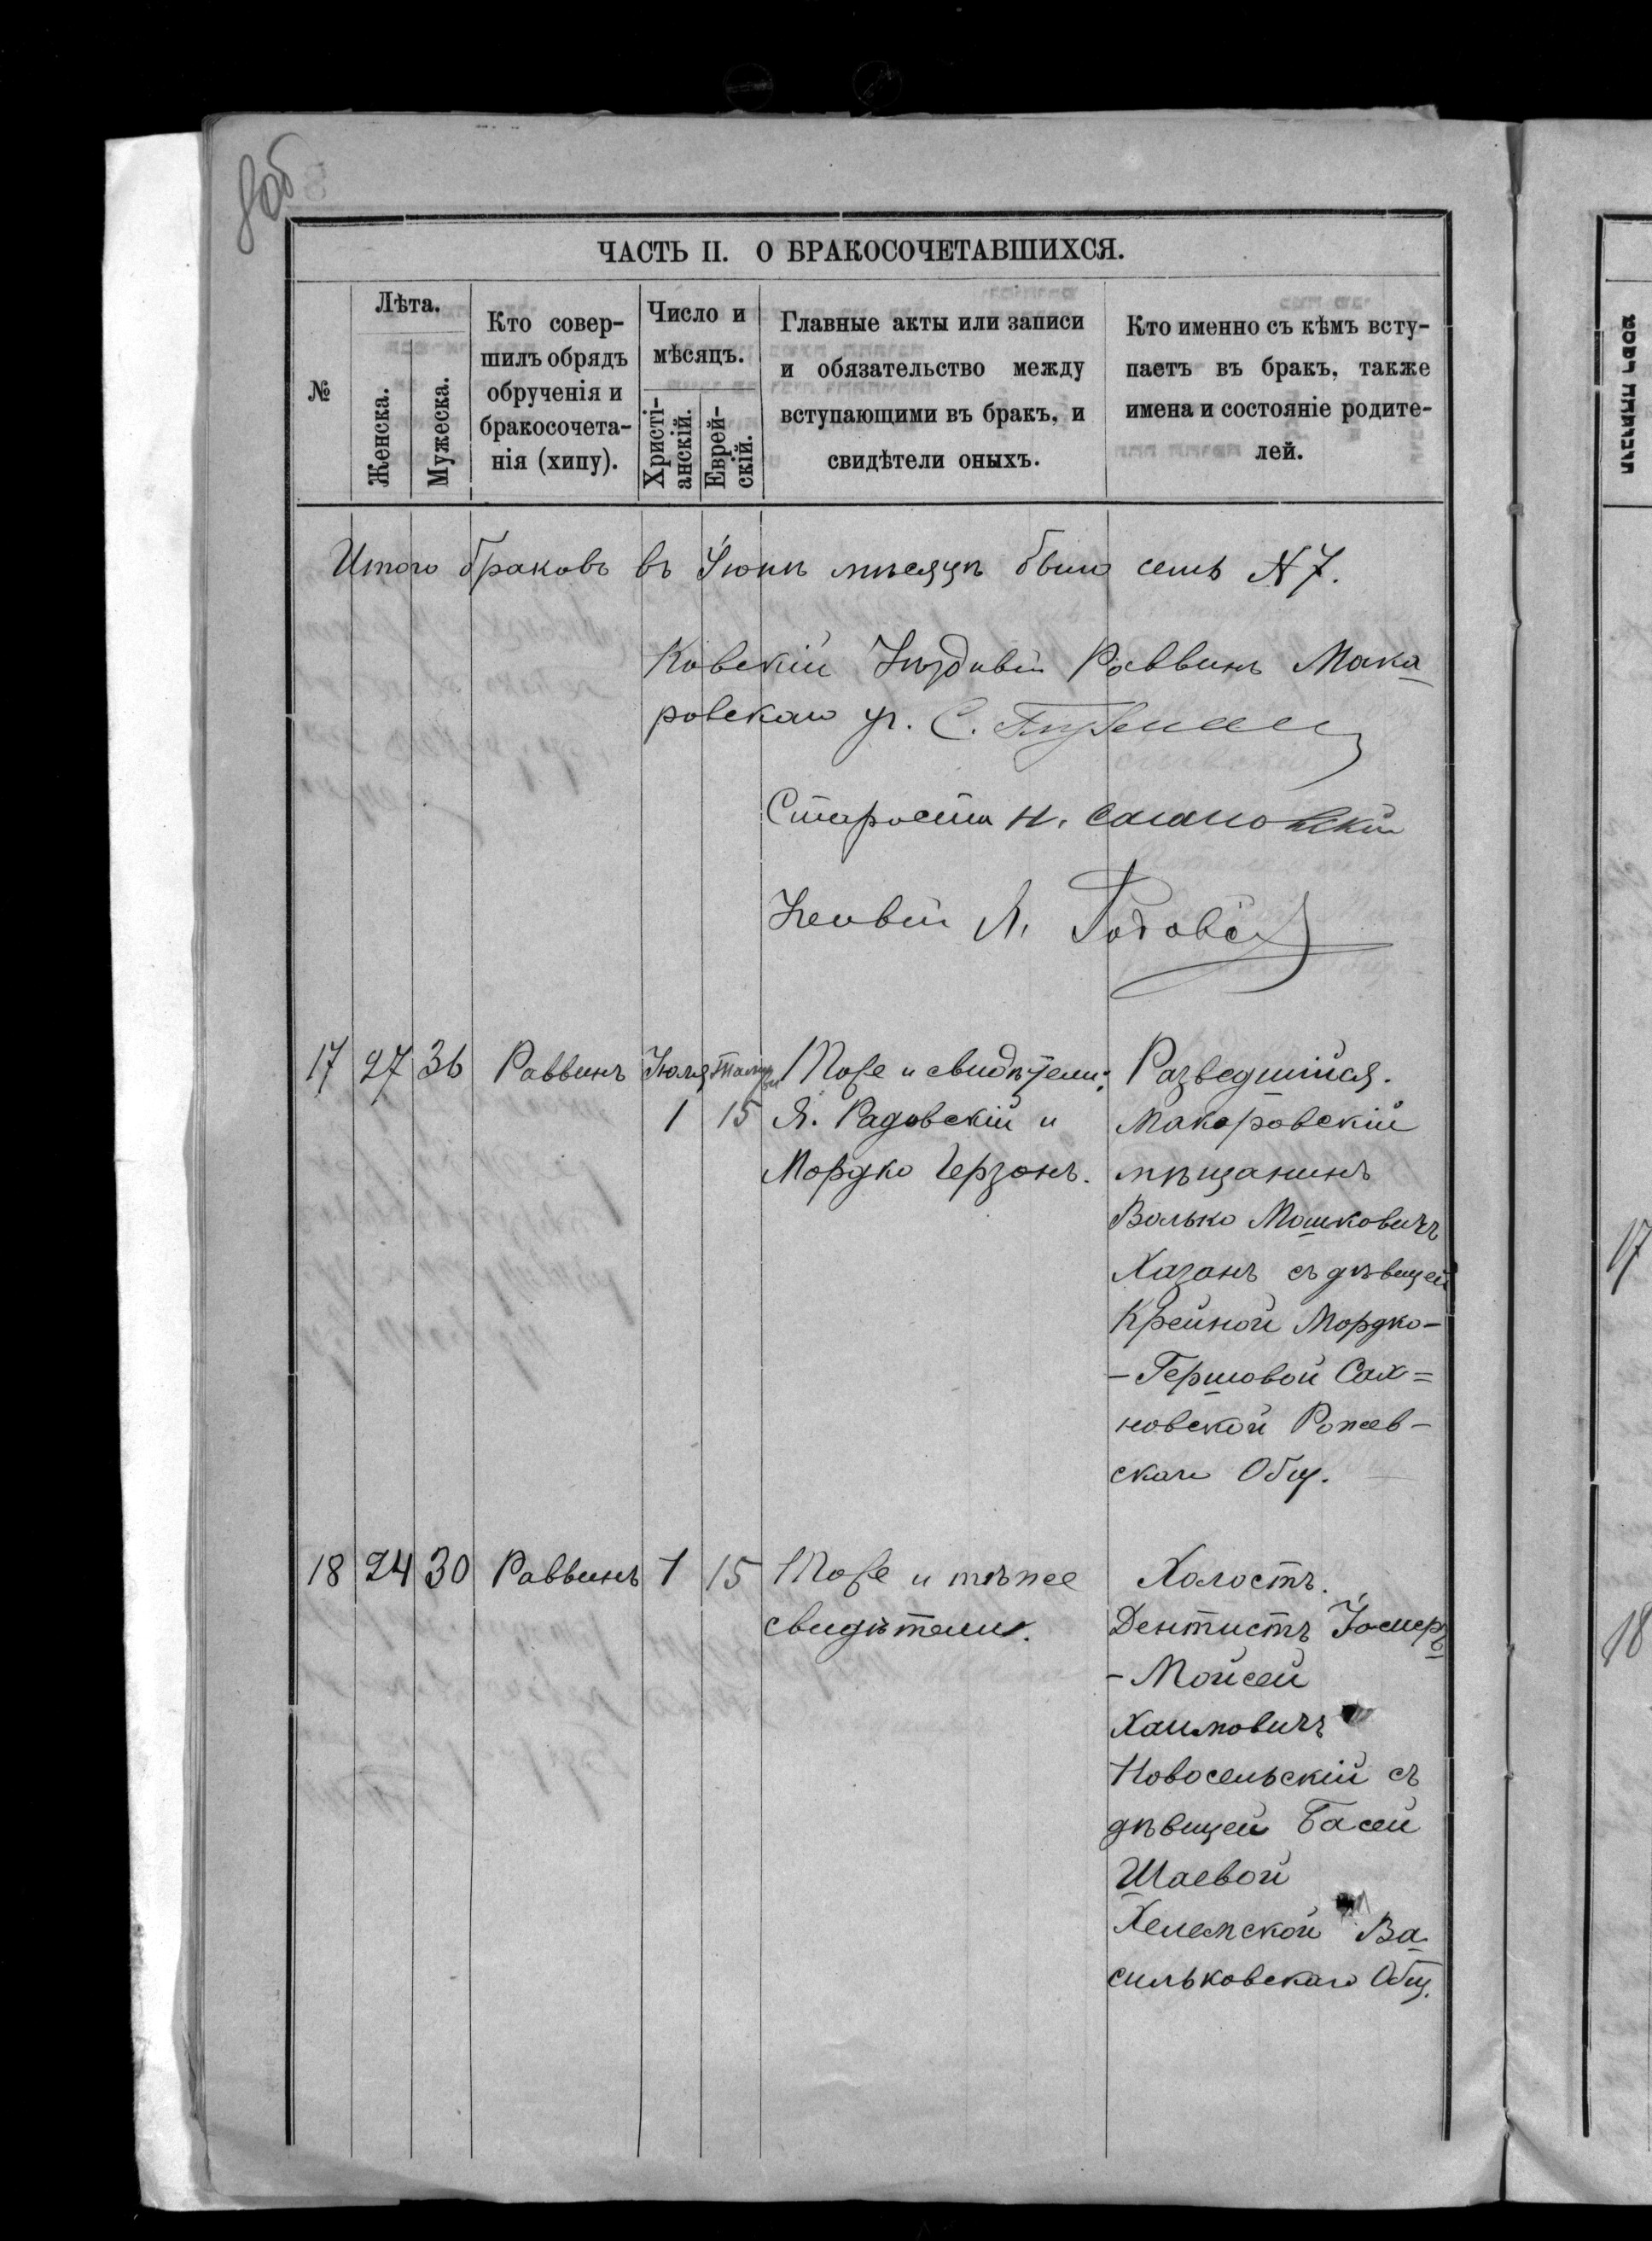 8об
ЧАСТЬ II. О БРАКОСОЧЕТАВШИХСЯ.
№
Лѣта.
Женска.
Мужеска.
Кто совер-
шилъ обрядъ
обрученія и
бракосочета-
нія (хипу).
Число и
мѣсяцъ.
Христі-
анскій.
Еврей-
скій.
Главные акты или записи
и обязательство между
вступающими въ бракъ, и
свидѣтели оныхъ.
Кто именно съ кѣмъ всту-
паетъ въ бракъ, также
имена и состояніе родите-
лей.
Итого браковъ въ Іюнѣ мѣсяцѣ было семь № 7.
Раввинъ Мака-
ровскаго уч. С.
Староста Н.
Я.
17 27 36 Раввинъ Іюля 1 15 Тоже и свидѣтели:
Я. Радовскій и
Мордко Герзонъ.
Разведшійся.
Макаровскій
мѣщанинъ
Волько Мошковичъ
Хазанъ съ дѣвицей
Крейной Мордко-
-Гершовой Сах=
новской Рожев-
скаго Общ.
18 24 30 Раввинъ 1 15 Тоже и тѣ же
свидѣтели.
Холостъ.
Дентистъ
-Мойсей
Хаимовичъ
Новосельскій съ
дѣвицей Басей
Шаевой
Хелемской Ва-
сильковскаго Общ.
17
18